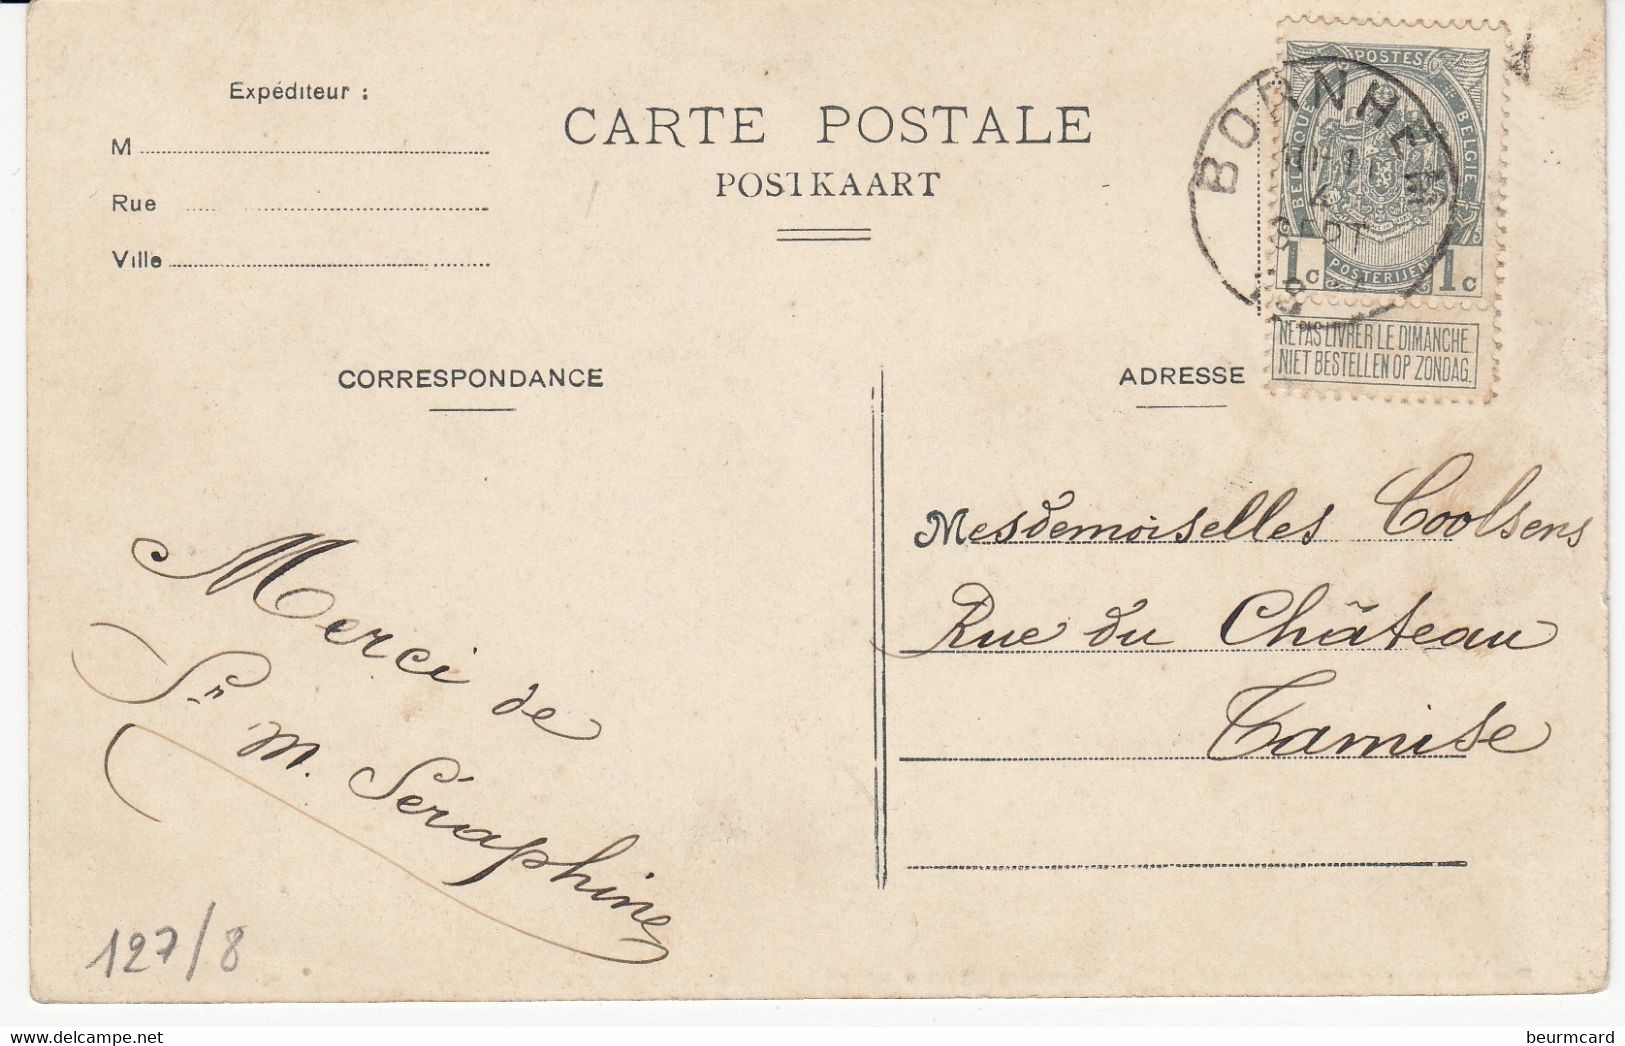 Expéditeur :
M
Rue
Ville
CARTE POSTALE
POSTKAART
BORNHEM
SEPT
POSTES
BELGIQUE
BELGIE
POSTERIJEN
1c 1c
NE PAS LIVRER LE DIMANCHE.
NIET BESTELLEN OP ZONDAG.
CORRESPONDANCE
ADRESSE
Merci de
Sr. M. Séraphine
Mesdemoiselles Coolsens
Rue du Château
Tamise
127/8
www.delcampe.net
beurmcard